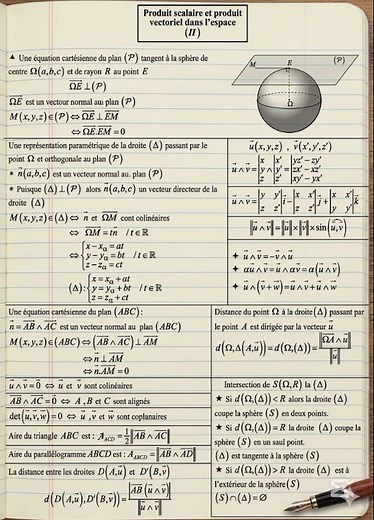 Produit scalaire et produit
vectoriel dans l'espace
(II)
▲ Une équation cartésienne du plan (P) tangent à la sphère de
centre Ω(a,b,c) et de rayon R au point E
ΩE⃗ ⊥ (P)
ΩE⃗ est un vecteur normal au plan (P)
M(x,y,z)∈(P) ⇔ ΩE⃗ ⊥ EM⃗
⇔ ΩE⃗.EM⃗ = 0
M E (P)
Ω
Une représentation paramétrique de la droite (Δ) passant par le
point Ω et orthogonale au plan (P)
* n⃗(a,b,c) est un vecteur normal au plan (P)
* Puisque (Δ)⊥(P) alors n⃗(a,b,c) un vecteur directeur de la
droite (Δ)
M(x,y,z)∈(Δ) ⇔ n⃗ et ΩM⃗ sont colinéaires
⇔ ΩM⃗ = tn⃗ / t∈ℝ
⇔ { x−xΩ = at
y−yΩ = bt / t∈ℝ
z−zΩ = ct
(Δ): { x = xΩ + at
y = yΩ + bt / t∈ℝ
z = zΩ + ct
u⃗(x,y,z) , v⃗(x',y',z')
u⃗∧v⃗ = |x x'| |yz'−zy'|
|y ∧ y'| = |zx'−xz'|
|z z'| |xy'−yx'|
u⃗∧v⃗ = |y y'| i⃗ − |x x'| j⃗ + |x x'| k⃗
|z z'| |z z'| |y y'|
‖u⃗∧v⃗‖ = ‖u⃗‖×‖v⃗‖×sin(u⃗,v⃗)
✦ u⃗∧v⃗ = −v⃗∧u⃗
✦ αu⃗∧v⃗ = u⃗∧αv⃗ = α(u⃗∧v⃗)
✦ u⃗∧(v⃗+w⃗) = u⃗∧v⃗ + u⃗∧w⃗
Une équation cartésienne du plan (ABC):
n⃗ = AB⃗∧AC⃗ est un vecteur normal au plan (ABC)
M(x,y,z)∈(ABC) ⇔ (AB⃗∧AC⃗) ⊥ AM⃗
⇔ n⃗ ⊥ AM⃗
⇔ n⃗.AM⃗ = 0
Distance du point Ω à la droite (Δ) passant par
le point A est dirigée par la vecteur u⃗
d(Ω,Δ(A,u⃗)) = d(Ω,(Δ)) = ‖ΩA⃗∧u⃗‖ / ‖u⃗‖
u⃗∧v⃗ = 0⃗ ⇔ u⃗ et v⃗ sont colinéaires
AB⃗∧AC⃗ = 0⃗ ⇔ A, B et C sont alignés
det(u⃗,v⃗,w⃗) = 0 ⇔ u⃗, v⃗ et w⃗ sont coplanaires
Aire du triangle ABC est : A_ABC = 1/2 ‖AB⃗∧AC⃗‖
Aire du parallélogramme ABCD est : A_ABCD = ‖AB⃗∧AD⃗‖
La distance entre les droites D(A,u⃗) et D'(B,v⃗)
d(D(A,u⃗),D'(B,v⃗)) = |AB⃗.(u⃗∧v⃗)| / ‖u⃗∧v⃗‖
Intersection de S(Ω,R) la (Δ)
★ Si d(Ω,(Δ)) < R alors la droite (Δ)
coupe la sphère (S) en deux points.
★ Si d(Ω,(Δ)) = R la droite (Δ) coupe la
sphère (S) en un saul point.
(Δ) est tangente à la sphère (S)
★ Si d(Ω,(Δ)) > R la droite (Δ) est à
l'extérieur de la sphère (S)
(S)∩(Δ) = ∅